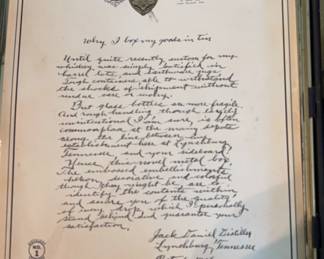 Why I box my goods in tin
Until quite recently custom for my
whiskey was simply satisfied in
barrel lots, and earthware jugs.
Tough containers able to withstand
the shocks of shipment without
undue care or worry.
But glass bottles are more fragile.
And rough handling though largely
unintentional I am sure, is often
commonplace at the many depots
along the line between my
establishment here at Lynchburg,
Tennessee and your sideboard.
Hence this novel metal box.
The embossed embellishments
being decorative and colorful
though they might be are to
identify the contents within
and assure you of the quality
of every drop which I personally
stand behind and guarantee your
satisfaction.
Jack Daniel Distiller
Lynchburg, Tennessee